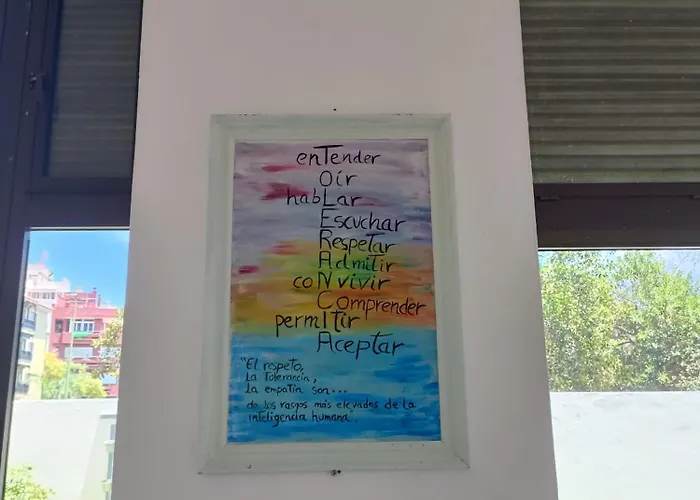 enTender
Oír
habLar
Escuchar
Respetar
Admitir
coNvivir
Comprender
permItir
Aceptar
"El respeto,
La Tolerancia,
La empatía son...
de los rasgos más elevados de la
inteligencia humana".